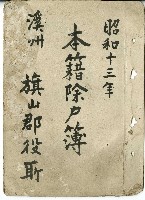 昭和十三年
本籍除戸簿
溪州
旗山郡役所